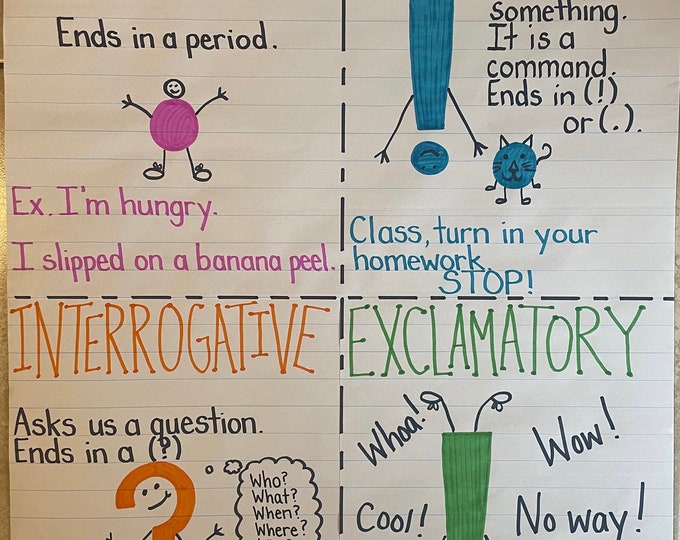 Ends in a period.
Ex. I'm hungry.
I slipped on a banana peel.
something.
It is a
command.
Ends in (!)
or (.).
Class, turn in your
homework.
STOP!
INTERROGATIVE
Asks us a question.
Ends in a (?)
Who?
What?
When?
Where?
EXCLAMATORY
Whoa!
Wow!
Cool!
No way!